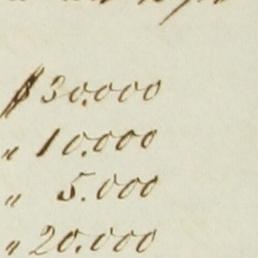 $30.000
" 10.000
" 5.000
" 20.000